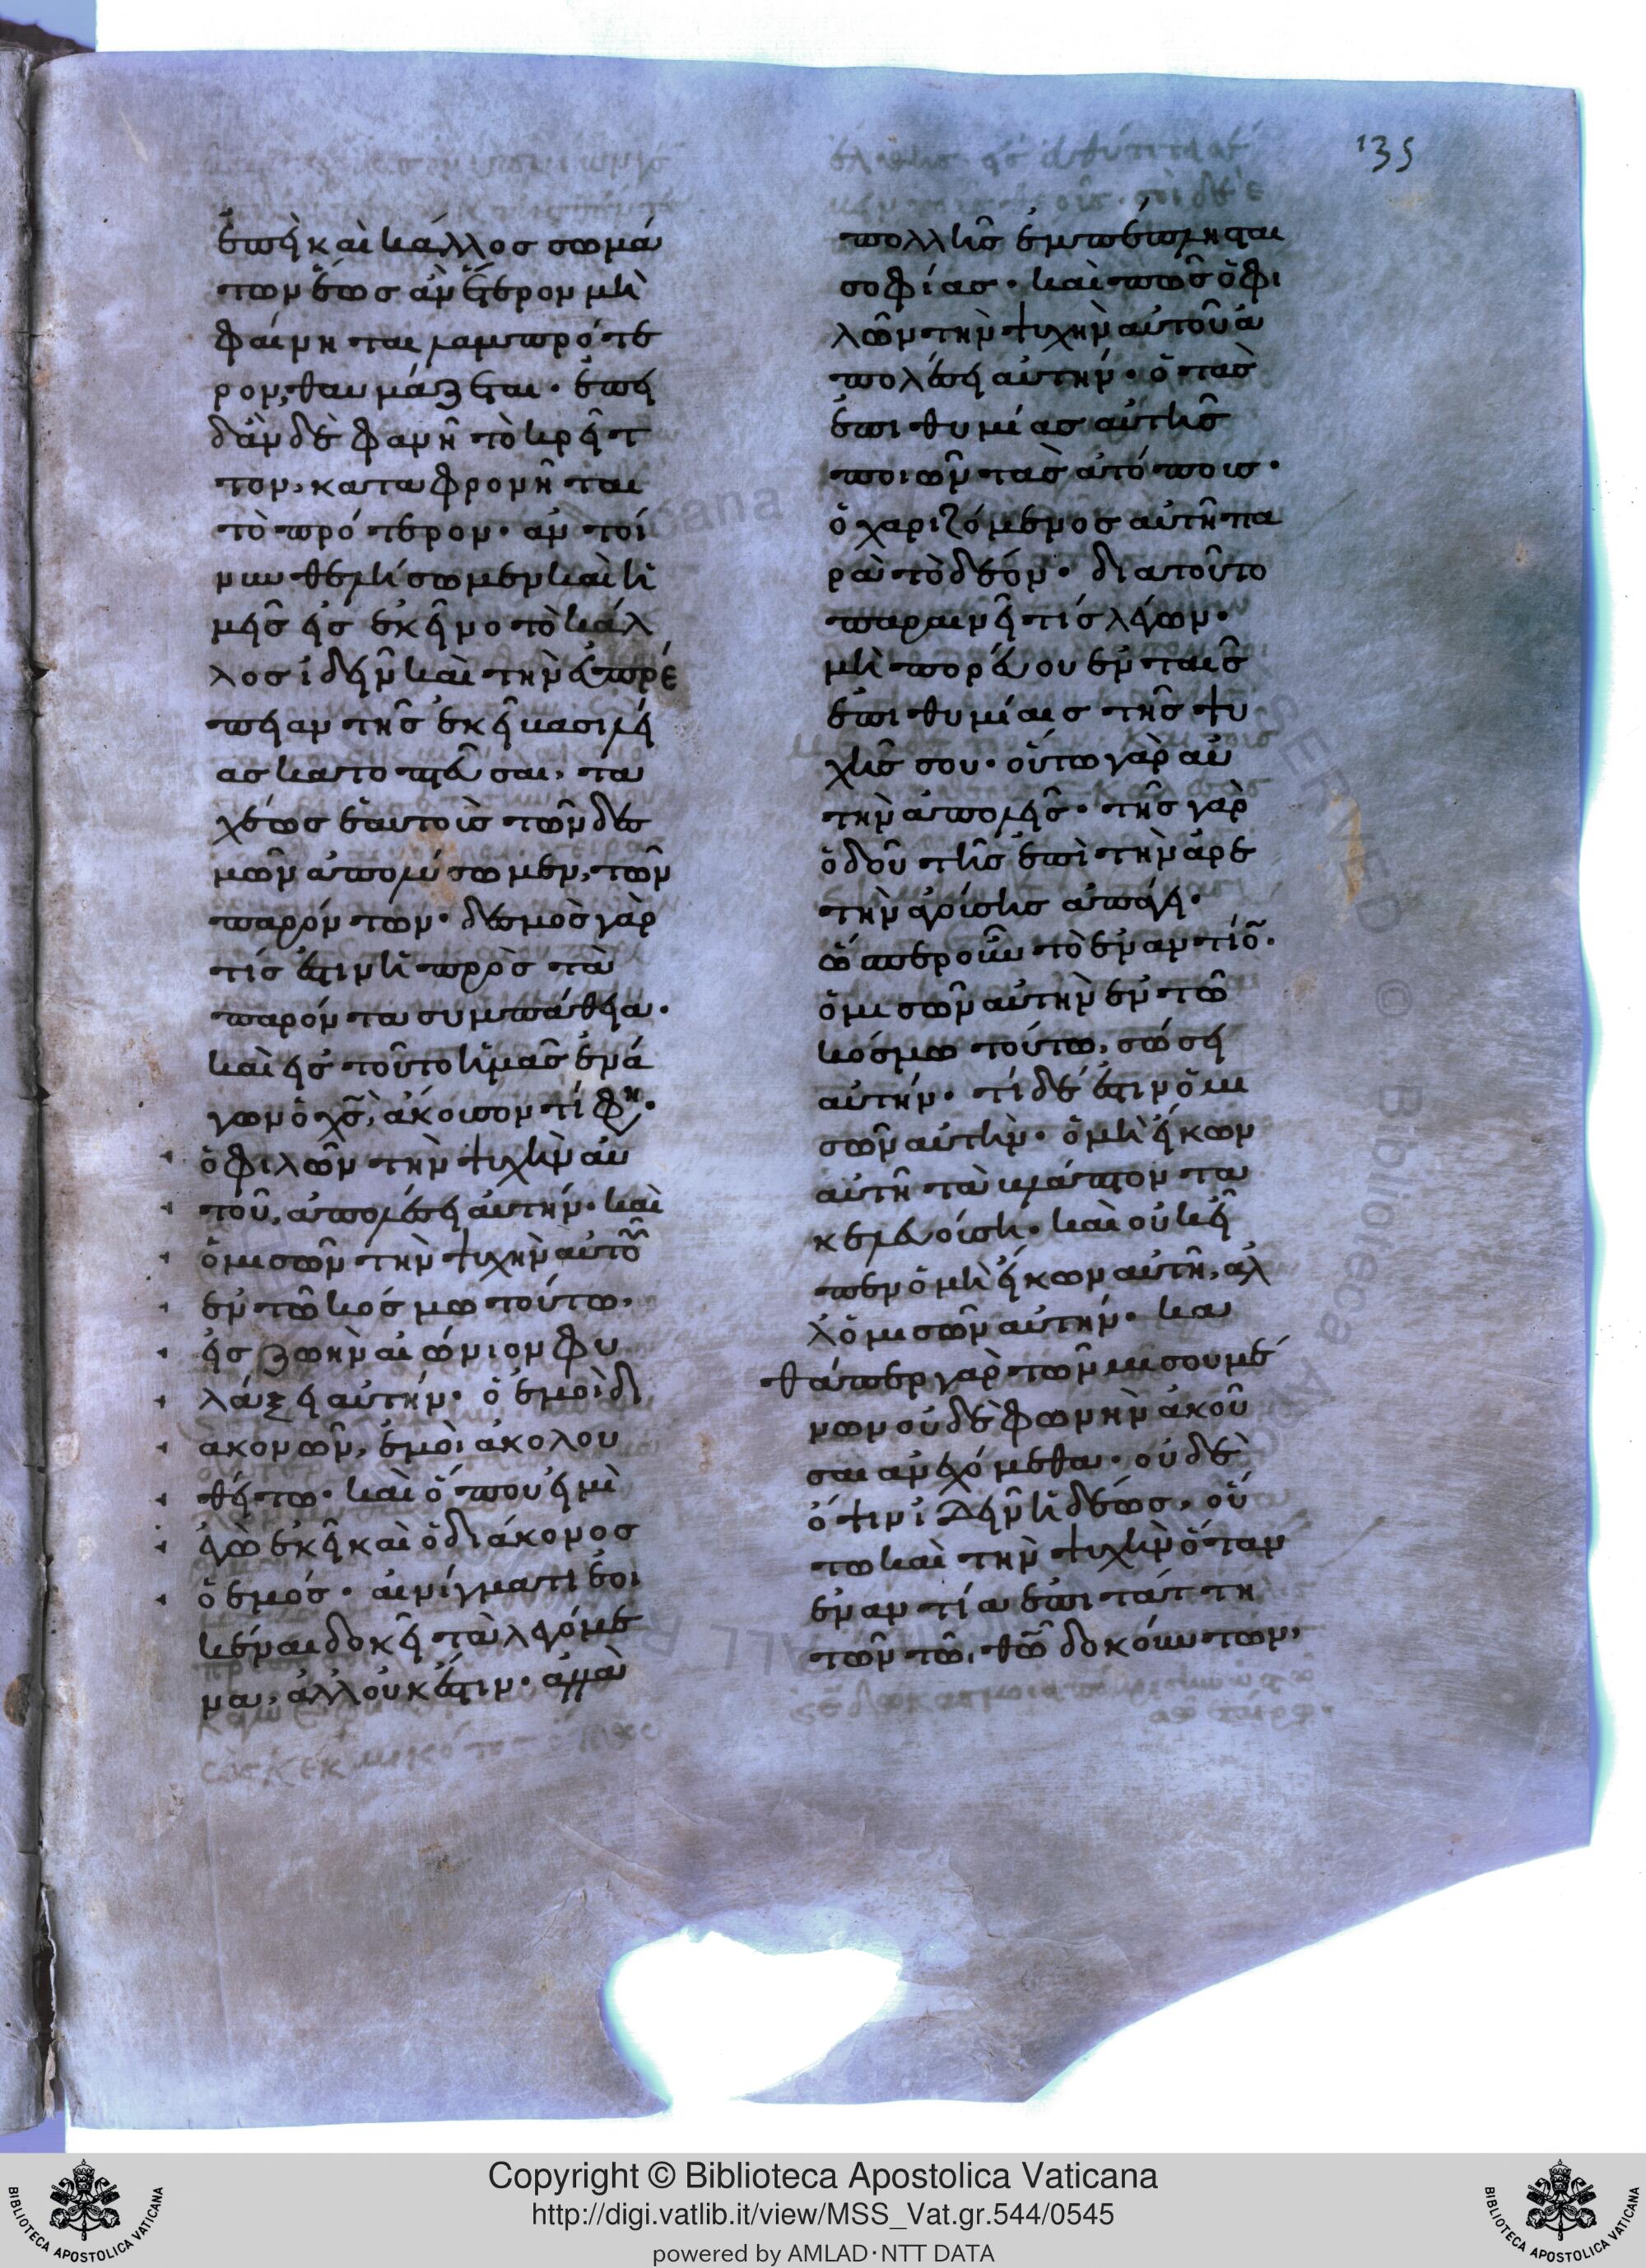 135
ἐπεὶ καὶ κάλλος σωμά
των ἕως ἂν ἕτερον μὴ
φαίνηται λαμπρότε
ρον, θαυμάζεται· ἐπει
δὰν δὲ φανῆ τὸ κρεῖτ
τον, καταφρονεῖται
τὸ πρότερον· ἂν τοί
νυν θελήσωμεν καὶ ἡ
μεῖς εἰς ἐκεῖνο τὸ κάλ
λος ἰδεῖν καὶ τὴν εὐπρέ
πειαν τῆς ἐκεῖ βασιλεί
ας κατοπτεῦσαι, τα
χέως ἑαυτοὺς τῶν δεσ
μῶν ἀπολύσωμεν, τῶν
παρόντων· δεσμὸς γὰρ
τίς ἐστιν ἡ πρὸς τὰ
παρόντα συμπάθεια·
καὶ εἰς τοῦτο ἡμᾶς ἐνά
γων ὁ χς, ἄκουσον τί φη·
ὁ φιλῶν τὴν ψυχὴν αὐ
τοῦ, ἀπολέσει αὐτήν· καὶ
ὁ μισῶν τὴν ψυχὴν αὐτοῦ
ἐν τῶ κόσμω τούτω,
εἰς ζωὴν αἰώνιον φυ
λάξει αὐτήν· ὁ ἐμοὶ δι
ακονῶν, ἐμοὶ ἀκολου
θείτω· καὶ ὅπου εἰμὶ
ἐγὼ ἐκεῖ καὶ ὁ διάκονος
ὁ ἐμός· αἰνίγματι ἐοι
κέναι δοκεῖ τὰ λεγόμε
να, ἀλλ' οὐκ ἔστιν· ἀλλὰ
πολλῆς ἐμπέπλησται
σοφίας· καὶ πῶς ὁ φι
λῶν τὴν ψυχὴν αὐτοῦ ἀ
πολέσει αὐτήν· ὁ τὰς
ἐπιθυμίας αὐτῆς
ποιῶν τὰς ἀτόπους·
ὁ χαριζόμενος αὐτῆ πα
ρὰ τὸ δέον· διατοῦτο
παραινεῖ τίς λέγων·
μὴ πορεύου ἐν ταῖς
ἐπιθυμίαις τῆς ψυ
χῆς σου· οὕτω γὰρ αὐ
τὴν ἀπολεῖς· τῆς γὰρ
ὁδοῦ τῆς ἐπὶ τὴν ἀρε
τὴν ἀγούσης ἀπάγει·
ὥσπερ οὖν τὸ ἐναντίον·
ὁ μισῶν αὐτὴν ἐν τῶ
κόσμω τούτω, σώσει
αὐτήν· τί δέ ἐστιν ὁ μι
σῶν αὐτὴν· ὁ μὴ εἴκων
αὐτῆ τὰ βλάπτοντα
κελευούση· καὶ οὐκ εἶ
πεν ὁ μὴ εἴκων αὐτῆ, ἀλ
λ' ὁ μισῶν αὐτήν· κα
θάπερ γὰρ τῶν μισουμέ
νων οὐδὲ φωνὴν ἀκοῦ
σαι ἀνεχόμεθα· οὐδὲ
ὄψιν ἰδεῖν ἡδέως, οὕ
τω καὶ τὴν ψυχὴν ὅταν
ἐναντία ἐπιτάττη
τῶν τῶ θῶ δοκούντων,
Copyright © Biblioteca Apostolica Vaticana
http://digi.vatlib.it/view/MSS_Vat.gr.544/0545
powered by AMLAD·NTT DATA
BIBLIOTECA APOSTOLICA VATICANA
BIBLIOTECA APOSTOLICA VATICANA